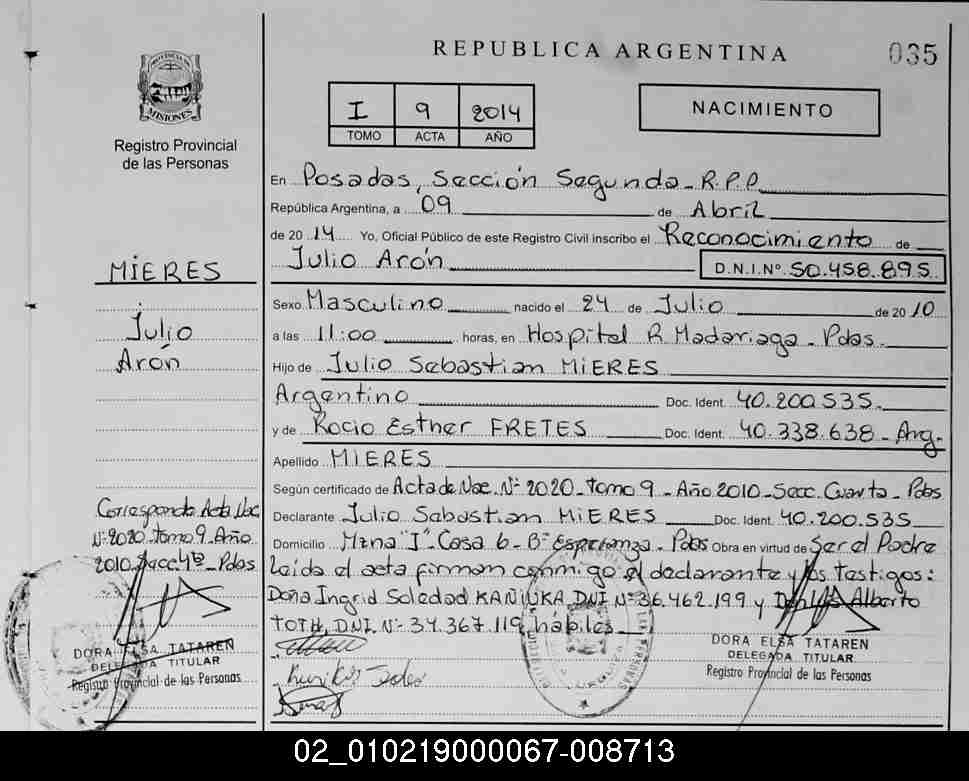 REPUBLICA ARGENTINA
035
PROVINCIA DE
MISIONES
Registro Provincial
de las Personas
I 9 2014
TOMO ACTA AÑO
NACIMIENTO
En Posadas, Sección Segunda - R.P.P
República Argentina, a 09 de Abril
de 2014 Yo, Oficial Público de este Registro Civil inscribo el Reconocimiento de
Julio Arón D.N.I.Nº 50.458.895
Sexo Masculino nacido el 24 de Julio de 2010
a las 11:00 horas, en Hospital R. Madariaga - Pdas.
Hijo de Julio Sebastian MIERES
Argentino Doc. Ident. 40.200.535.
y de Rocio Esther FRETES Doc. Ident. 40.338.638 - Arg.
Apellido MIERES
Según certificado de Acta de Nac. Nº 2020 - Tomo 9 - Año 2010 - Secc. Cuarta - Pdas
Declarante Julio Sabastian MIERES Doc. Ident. 40.200.535
Domicilio Mzna "I" - Casa 6 - Bº Esperanza - Pdas Obra en virtud de Ser el Padre
Leida el acta firman conmigo el declarante y los testigos:
Doña Ingrid Soledad KAÑIUKA DNI Nº 36.462.199 y Don Alberto
TOTH, DNI. Nº 34.367.119 hábiles
DORA ELSA TATAREN
DELEGADA TITULAR
Registro Provincial de las Personas
MIERES
Julio
Arón
Corresponde Acta Nac
Nº 2020 - Tomo 9 - Año
2010 - Secc. 4ta - Pdas
DORA ELSA TATAREN
DELEGADA TITULAR
Registro Provincial de las Personas
02_010219000067-008713